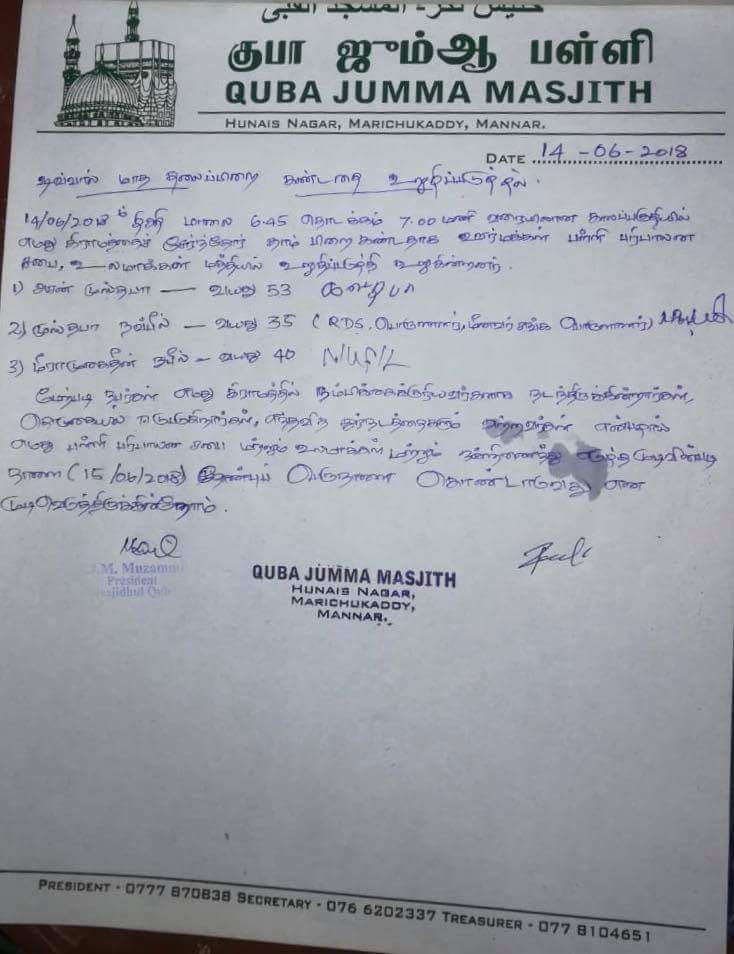 குபா ஜும்ஆ பள்ளி
QUBA JUMMA MASJITH
HUNAIS NAGAR, MARICHUKADDY, MANNAR.
DATE 14-06-2018
ஷவ்வால் மாத தலைப்பிறை கண்டதை உறுதிப்படுத்தல்.
14/06/2018 திகதி மாலை 6.45 தொடக்கம் 7.00 மணி வரையிலான காலப்பகுதியில்
எமது கிராமத்தைச் சேர்ந்தோர் தாம் பிறை கண்டதாக ஊர்மக்கள் பள்ளி பரிபாலன
சபை, உலமாக்கள் மத்தியில் உறுதிப்படுத்தி உள்ளனர்.
1) முஸ்தபா — வயது 53
2) முஸ்தபா நவ்பீல் – வயது 35 (RDS. பொருளாளர், மீனவர் சங்க பொருளாளர்)
3) மீராமுகைதீன் நபீல் – வயது 40 NUFIL
மேற்படி நபர்கள் எமது கிராமத்தில் நம்பிக்கைக்குரியவர்களாக நடந்திருக்கின்றார்கள்,
தொழுகையில் ஈடுபடுகிறார்கள், எந்தவித துர்நடத்தைகளும் அற்றவர்கள் என்பதால்
எமது பள்ளி பரிபாலன சபை மற்றும் உலமாக்கள் மற்றும் எடுத்த முடிவின்படி
நாளை (15/06/2018) நோன்புப் பெருநாளை கொண்டாடுவது என
முடிவெடுத்திருக்கின்றோம்.
M. Muzamm
President
QUBA JUMMA MASJITH
HUNAIS NAGAR,
MARICHUKADDY,
MANNAR.
PRESIDENT - 0777 870838 SECRETARY - 076 6202337 TREASURER - 077 8104651